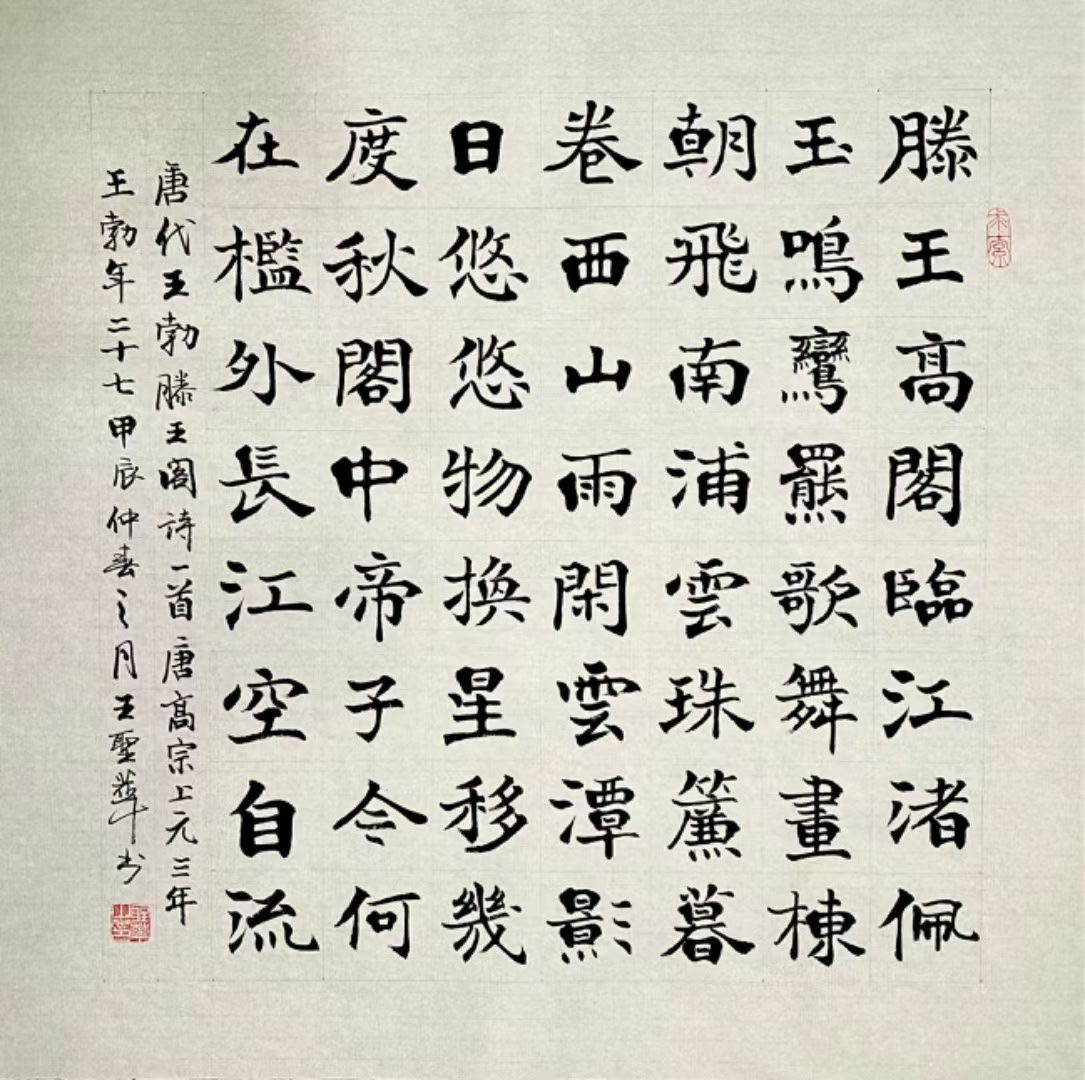 滕王高閣臨江渚佩
玉鳴鸞罷歌舞畫棟
朝飛南浦雲珠簾暮
卷西山雨閑雲潭影
日悠悠物換星移幾
度秋閣中帝子今何
在檻外長江空自流
唐代王勃滕王阁詩一首唐髙宗上元三年
王勃年二十七甲辰仲春之月王聖華书